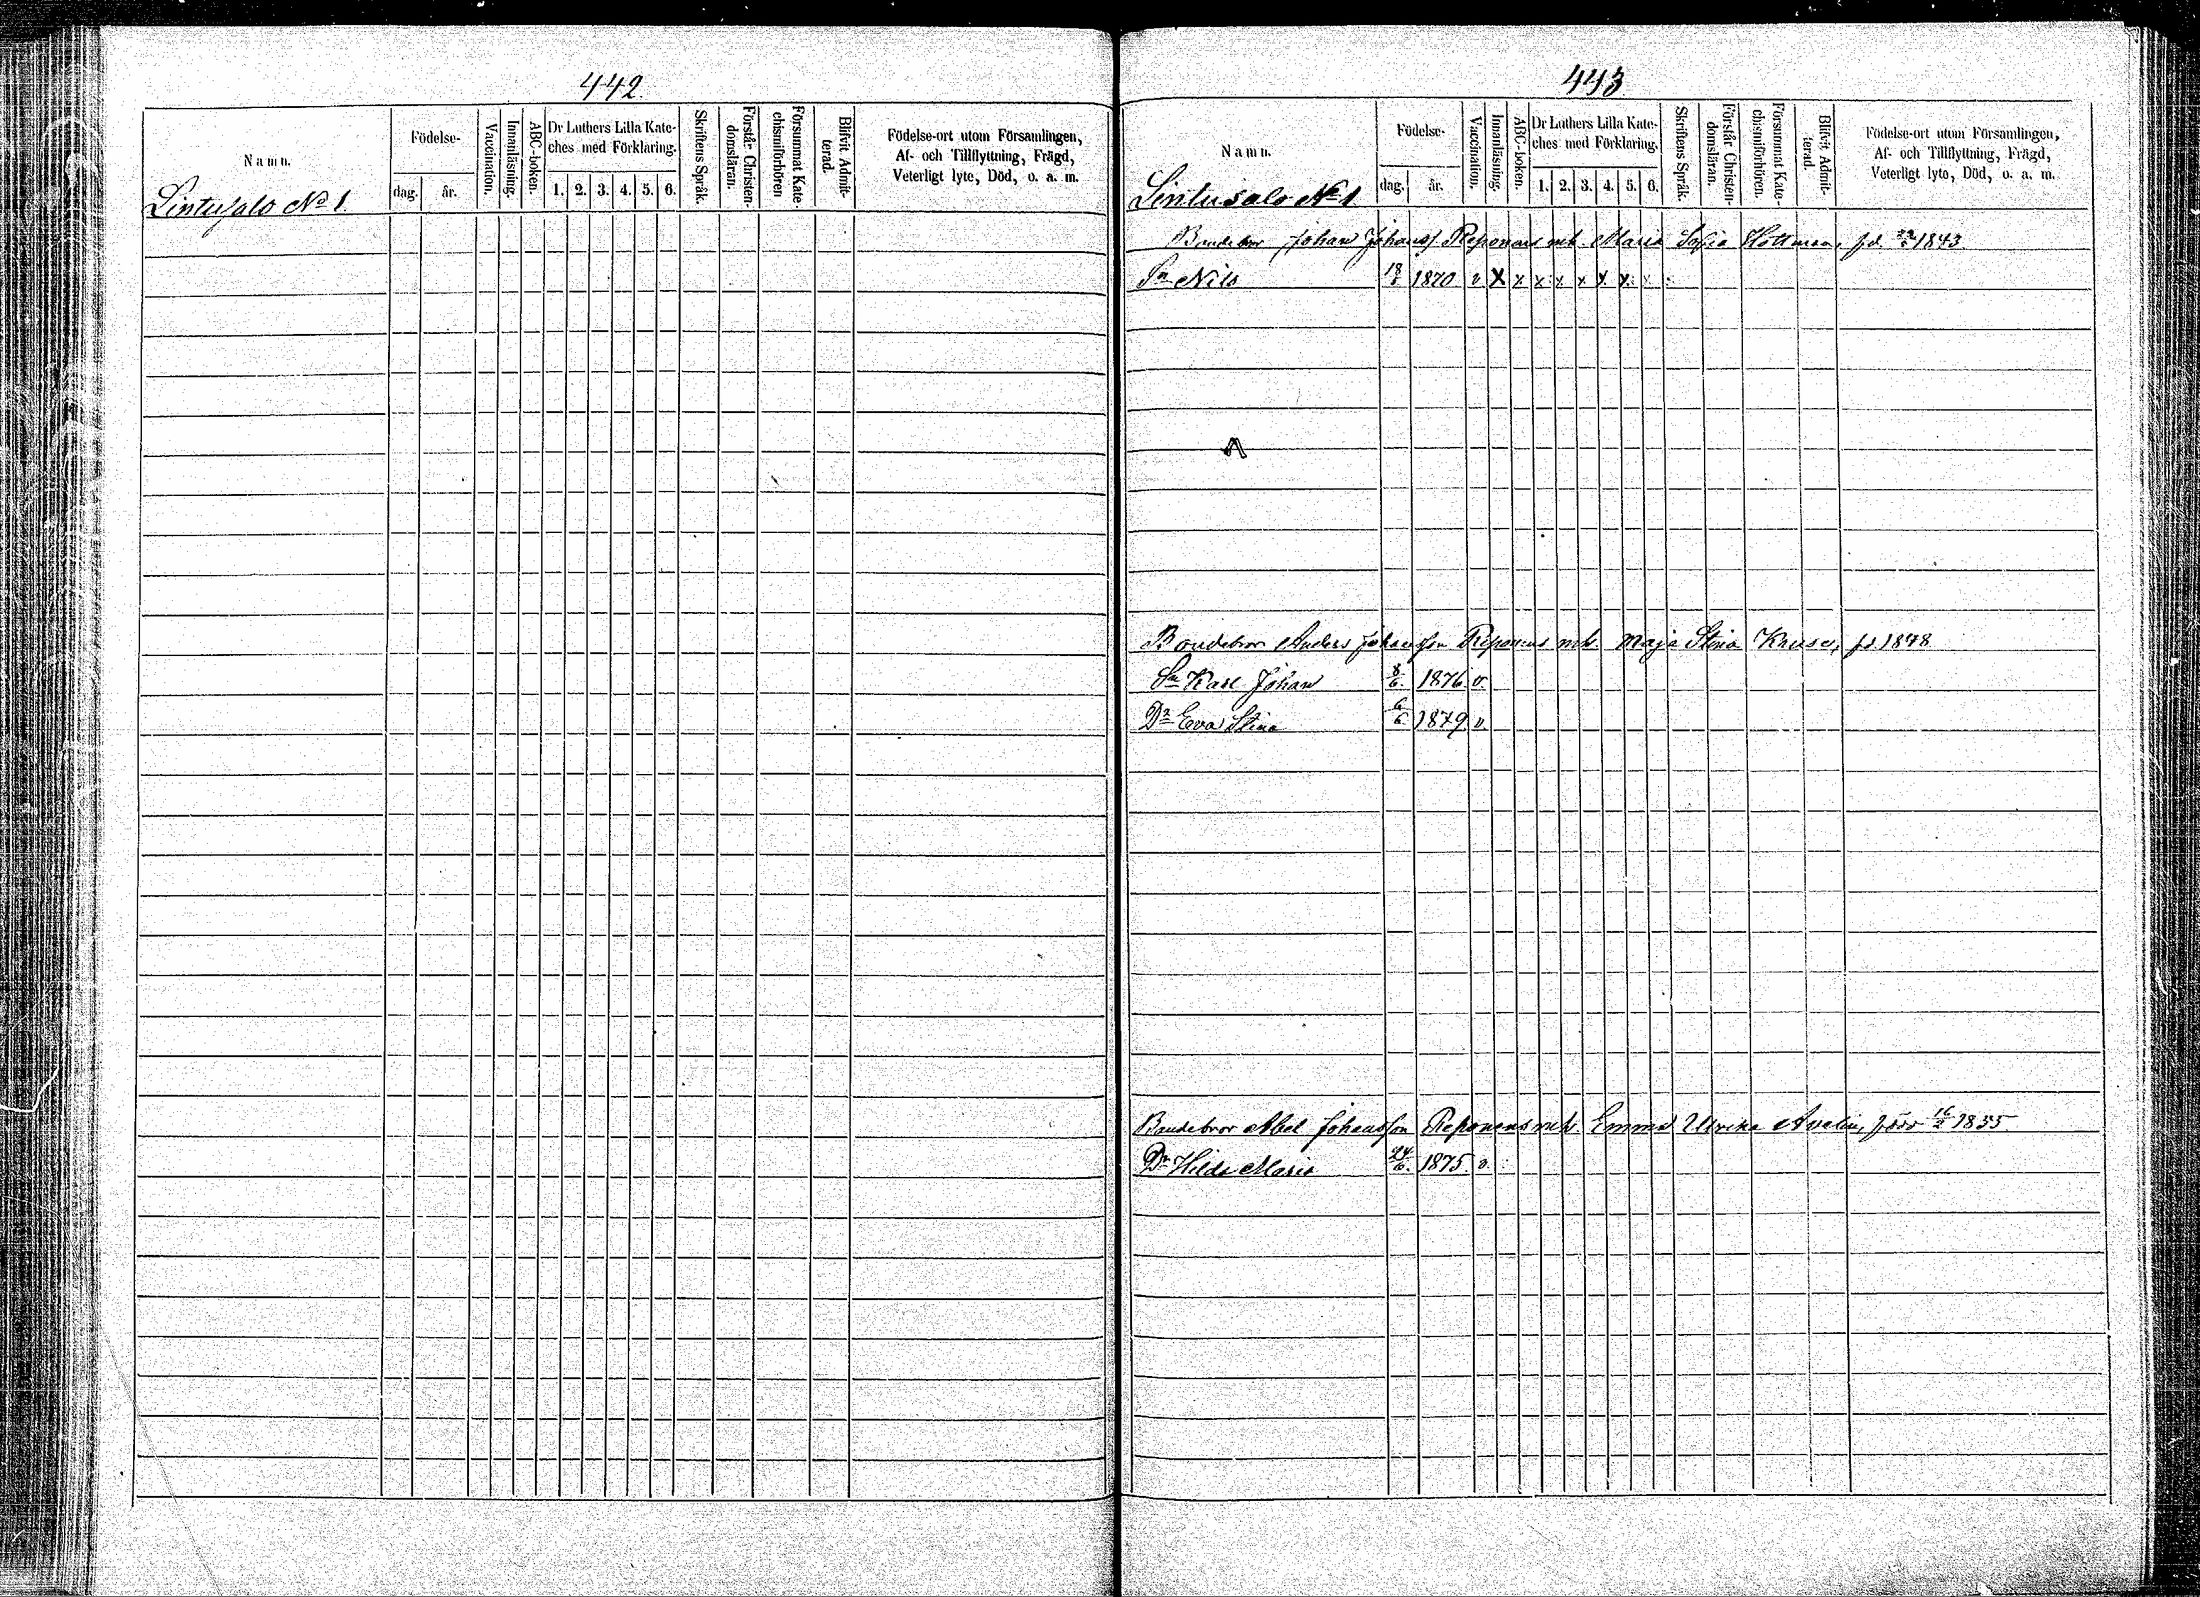 442.
Namn.
Födelse-
dag.
år.
Vaccination.
Innanläsning.
ABC-boken.
Dr Luthers Lilla Kate-
ches med Förklaring.
1. 2. 3. 4. 5. 6.
Skriftens Språk.
Förstår Christen-
domsläran.
Försummat Kate-
chismiförhören
Blifvit Admit-
terad.
Födelse-ort utom Församlingen,
Af- och Tillflyttning, Frägd,
Veterligt lyte, Död, o. a. m.
Lintusalo No 1.
443
Namn.
Födelse-
dag.
år.
Vaccination.
Innanläsning.
ABC-boken.
Dr Luthers Lilla Kate-
ches med Förklaring.
1. 2. 3. 4. 5. 6.
Skriftens Språk.
Förstår Christen-
domsläran.
Försummat Kate-
chismiförhören.
Blifvit Admit-
terad.
Födelse-ort utom Församlingen,
Af- och Tillflyttning, Frägd,
Veterligt lyte, Död, o. a. m.
Lintusalo No 1
Bondebror Johan Johanss. Reponens mh. Maria Sofia fd. 1843
Sn Nils 18 1870 v X x x x x x x x
Bondebror Anders Johansson Reponens mh. Maja Stina Kruse, fd. 1848
Sn Karl Johan 8/6. 1876. v.
Dr Eva Stina 6/6. 1879. v.
Bondebror Abel Johansson Reponens mh. Emma Ulrika Avelin, född 16/2 1855
Dr Hilda Maria 24/6. 1875 v.